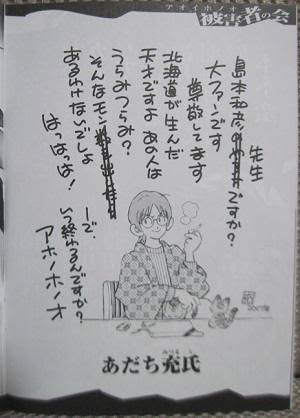 アオイホノオ
被害者の会
島本和彦先生
ですか?
大ファンです
尊敬してます
北海道が生んだ
天才ですよ あの人は
うらみつらみ?
そんなモン
あるわけないでしょ
はっはっは!
ーで、
いつ終わるんですか?
アホノホノオ
あだち充氏
みつる し